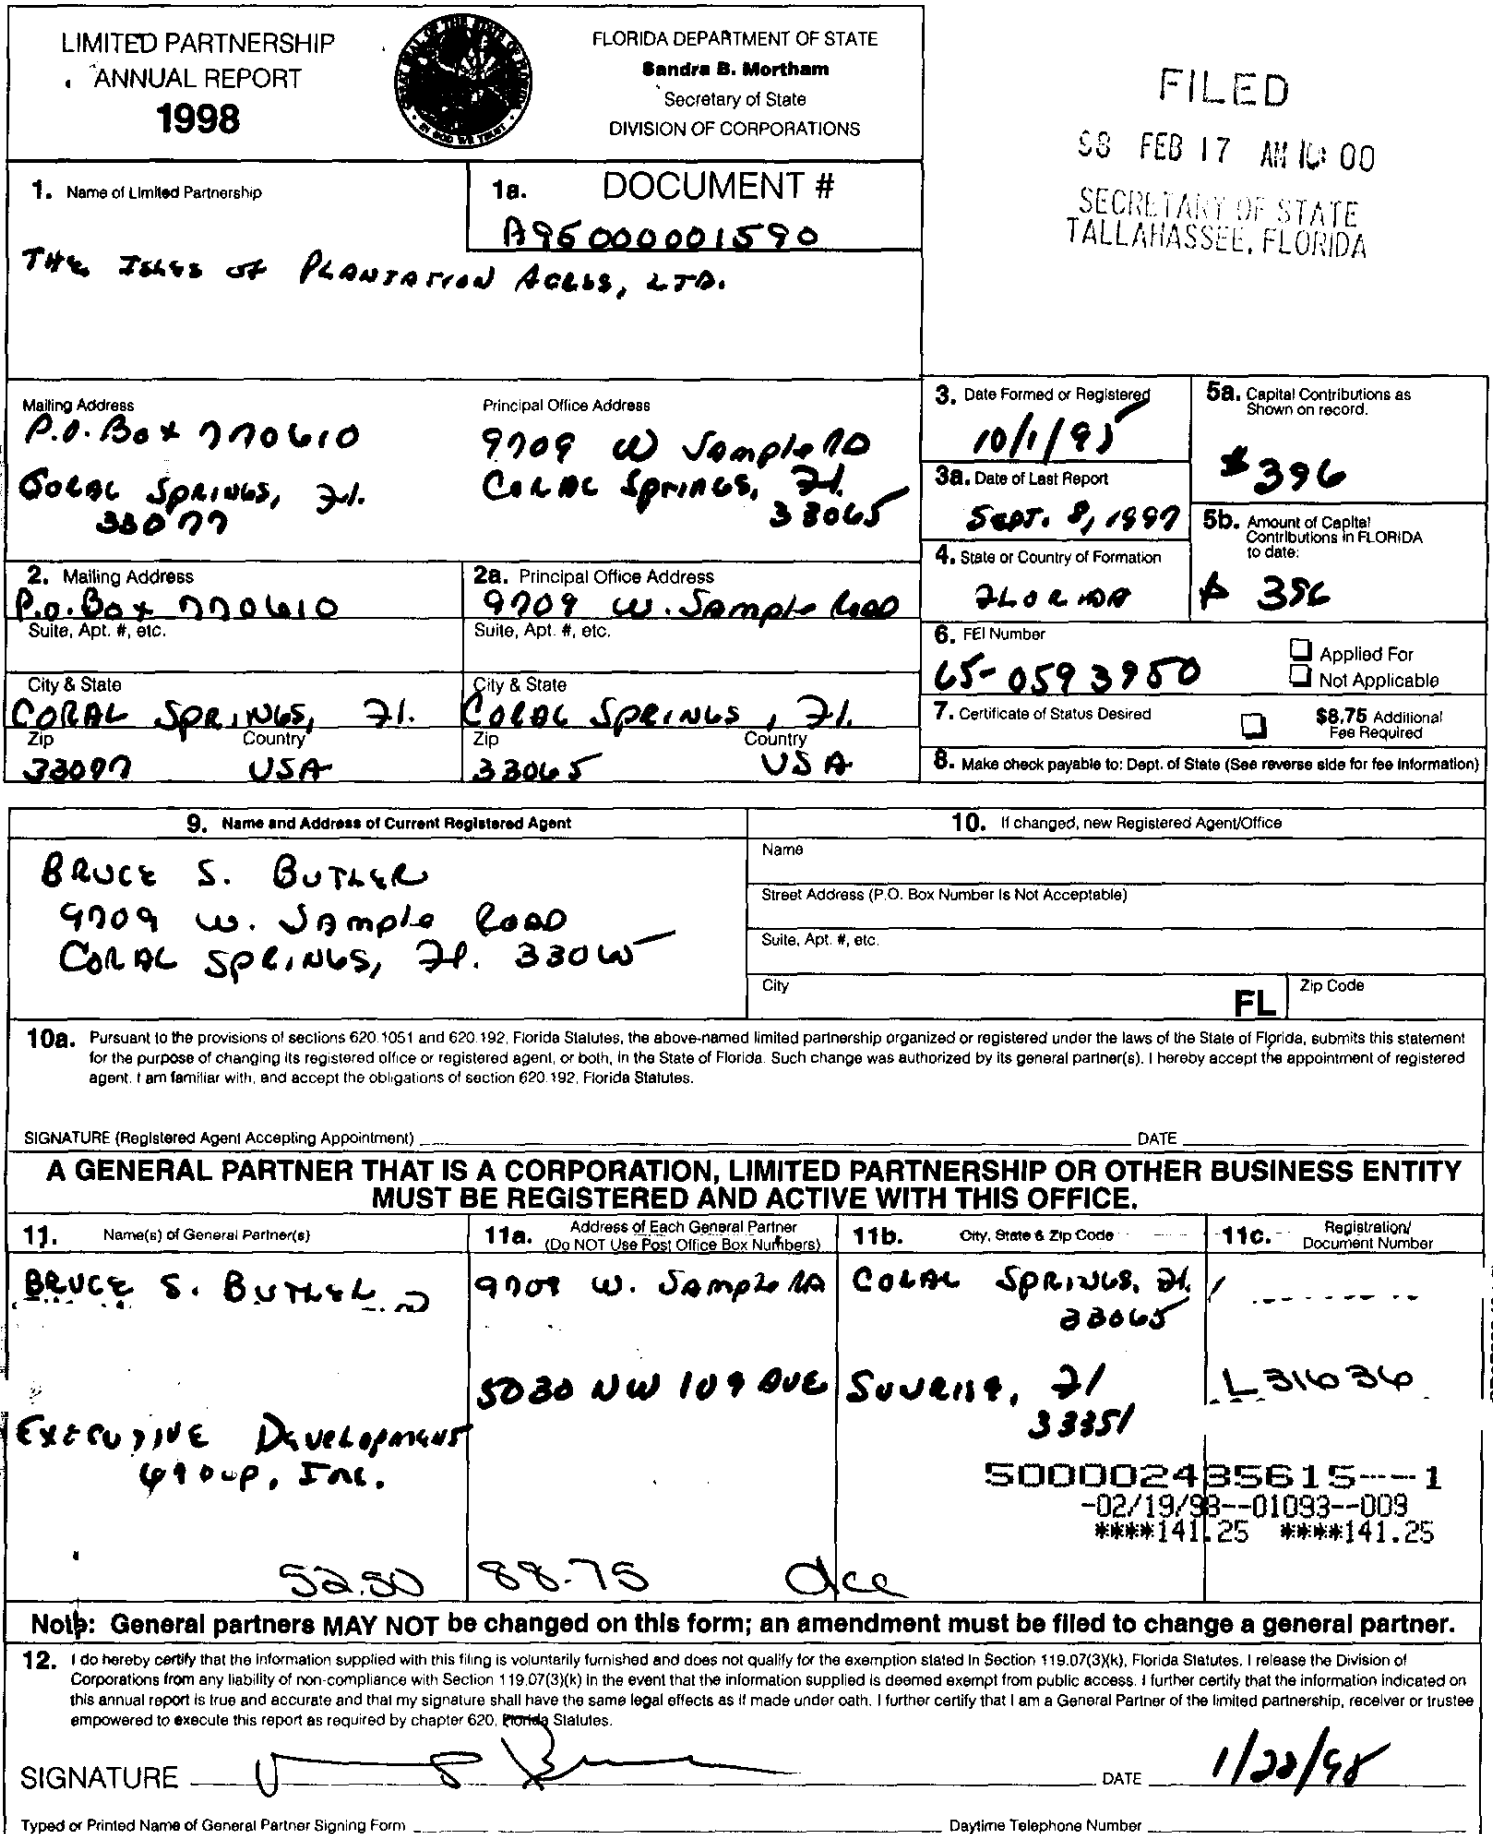 LIMITED PARTNERSHIP
ANNUAL REPORT
1998
FLORIDA DEPARTMENT OF STATE
Sandra B. Mortham
Secretary of State
DIVISION OF CORPORATIONS
FILED
98 FEB 17 AM 10:00
SECRETARY OF STATE
TALLAHASSEE, FLORIDA
1. Name of Limited Partnership
1a. DOCUMENT #
A95000001590
THE ISLES OF PLANTATION ACRES, LTD.
Mailing Address
P.O. Box 770610
CORAL SPRINGS, Fl.
33077
Principal Office Address
9709 W Sample RD
CORAL SPRINGS, Fl.
33065
3. Date Formed or Registered
10/1/95
5a. Capital Contributions as
Shown on record.
$396
3a. Date of Last Report
SEPT. 8, 1997
5b. Amount of Capital
Contributions in FLORIDA
to date:
$ 396
4. State or Country of Formation
FLORIDA
2. Mailing Address
P.O. Box 770610
2a. Principal Office Address
9709 W. Sample Road
Suite, Apt. #, etc.
Suite, Apt. #, etc.
6. FEI Number
65-0593950
Applied For
Not Applicable
City & State
CORAL SPRINGS, Fl.
City & State
CORAL SPRINGS, Fl.
7. Certificate of Status Desired
$8.75 Additional
Fee Required
Zip Country
33077 USA
Zip Country
33065 USA
8. Make check payable to: Dept. of State (See reverse side for fee information)
9. Name and Address of Current Registered Agent
BRUCE S. BUTLER
9709 W. Sample Road
CORAL SPRINGS, Fl. 33065
10. If changed, new Registered Agent/Office
Name
Street Address (P.O. Box Number Is Not Acceptable)
Suite, Apt. #, etc.
City FL Zip Code
10a. Pursuant to the provisions of sections 620.1051 and 620.192, Florida Statutes, the above-named limited partnership organized or registered under the laws of the State of Florida, submits this statement
for the purpose of changing its registered office or registered agent, or both, in the State of Florida. Such change was authorized by its general partner(s). I hereby accept the appointment of registered
agent. I am familiar with, and accept the obligations of section 620.192, Florida Statutes.
SIGNATURE (Registered Agent Accepting Appointment) DATE
A GENERAL PARTNER THAT IS A CORPORATION, LIMITED PARTNERSHIP OR OTHER BUSINESS ENTITY
MUST BE REGISTERED AND ACTIVE WITH THIS OFFICE.
11. Name(s) of General Partner(s)
11a. Address of Each General Partner
(Do NOT Use Post Office Box Numbers)
11b. City, State & Zip Code
11c. Registration/
Document Number
BRUCE S. BUTLER 9709 W. Sample Rd CORAL SPRINGS, Fl.
33065
5030 NW 109 AVE SUNRISE, Fl L31636
33351
EXECUTIVE DEVELOPMENT
Group, Inc.
500002435615---1
-02/19/98--01093--009
****141.25 ****141.25
52.50 88.75
Note: General partners MAY NOT be changed on this form; an amendment must be filed to change a general partner.
12. I do hereby certify that the information supplied with this filing is voluntarily furnished and does not qualify for the exemption stated in Section 119.07(3)(k), Florida Statutes. I release the Division of
Corporations from any liability of non-compliance with Section 119.07(3)(k) in the event that the information supplied is deemed exempt from public access. I further certify that the information indicated on
this annual report is true and accurate and that my signature shall have the same legal effects as if made under oath. I further certify that I am a General Partner of the limited partnership, receiver or trustee
empowered to execute this report as required by chapter 620, Florida Statutes.
SIGNATURE DATE 1/22/98
Typed or Printed Name of General Partner Signing Form Daytime Telephone Number